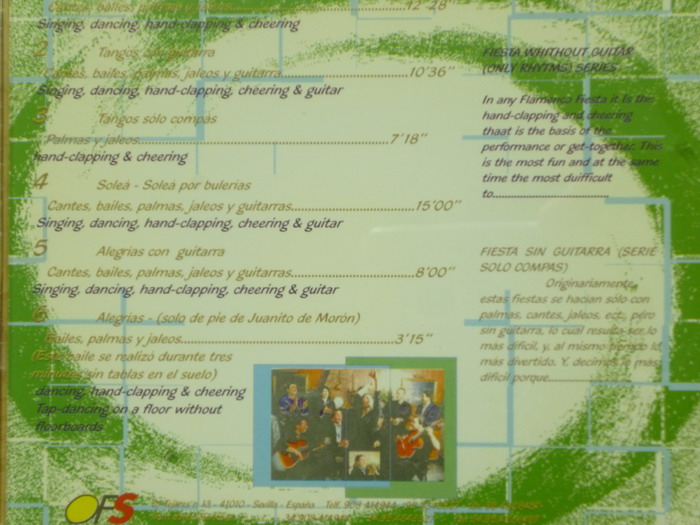 Cantes, bailes, palmas, jaleos y guitarra..........12'28"
Singing, dancing, hand-clapping & cheering
2 Tangos con guitarra
Cantes, bailes, palmas, jaleos y guitarra..........10'36"
Singing, dancing, hand-clapping, cheering & guitar
3 Tangos sólo compas
Palmas y jaleos..........7'18"
hand-clapping & cheering
4 Soleá - Soleá por bulerias
Cantes, bailes, palmas, jaleos y guitarra..........15'00"
Singing, dancing, hand-clapping, cheering & guitar
5 Alegrias con guitarra
Cantes, bailes, palmas, jaleos y guitarra..........8'00"
Singing, dancing, hand-clapping, cheering & guitar
6 Alegrias - (solo de pie de Juanito de Morón)
Bailes, palmas y jaleos..........3'15"
(Este baile se realizó durante tres
minutos sin tablas en el suelo)
dancing, hand-clapping & cheering
Tap-dancing on a floor without
floorboards
FIESTA WHITHOUT GUITAR
(ONLY RHYTMS) SERIES
In any Flamenco Fiesta it is the
hand-clapping and cheering
thaat is the basis of the
performance or get-together. This
is the most fun and at the same
time the most duifficult
to..........
FIESTA SIN GUITARRA (SERIE
SOLO COMPAS)
Originariamente,
estas fiestas se hacian sólo con
palmas, cantes, jaleos, ect., pero
sin guitarra, lo cual resulta ser lo
más dificil, y, al mismo tiempo lo
más divertido. Y, decimos lo más
dificil porque..........
OFS
41010 - Sevilla - España